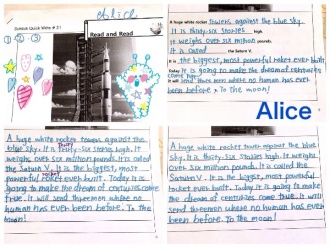 Alice
Summit Quick Write # 21
1 2 3
Read and Read
A huge white rocket towers against the blue sky.
It is thirty-six stories high.
It weighs over six million pounds.
It is called the Saturn V.
It is the biggest, most powerful rocket ever built.
Today it is going to make the dream of centuries
come true.
It will send three men where no human has ever
been before. To the moon!
Alice
A huge white rocket towers against the
blue sky. It is thirty-six stories high. It
weighs over six million pounds. It is called
the Saturn V. It is the biggest, most
rocket
powerful rocket ever built. Today it is
going to make the dream of centuries come
true. It will send three men where no
human has ever been before. To the
moon!
A huge white rocket towers against the blue
sky. It is thirty-six stories high. It weighs
over six million pounds. It is called the
Saturn V. It is the biggest, most powerful
rocket ever built. Today it is going to make
the dream of centuries come true. It will send
three men where no human has ever
been before. To the moon!